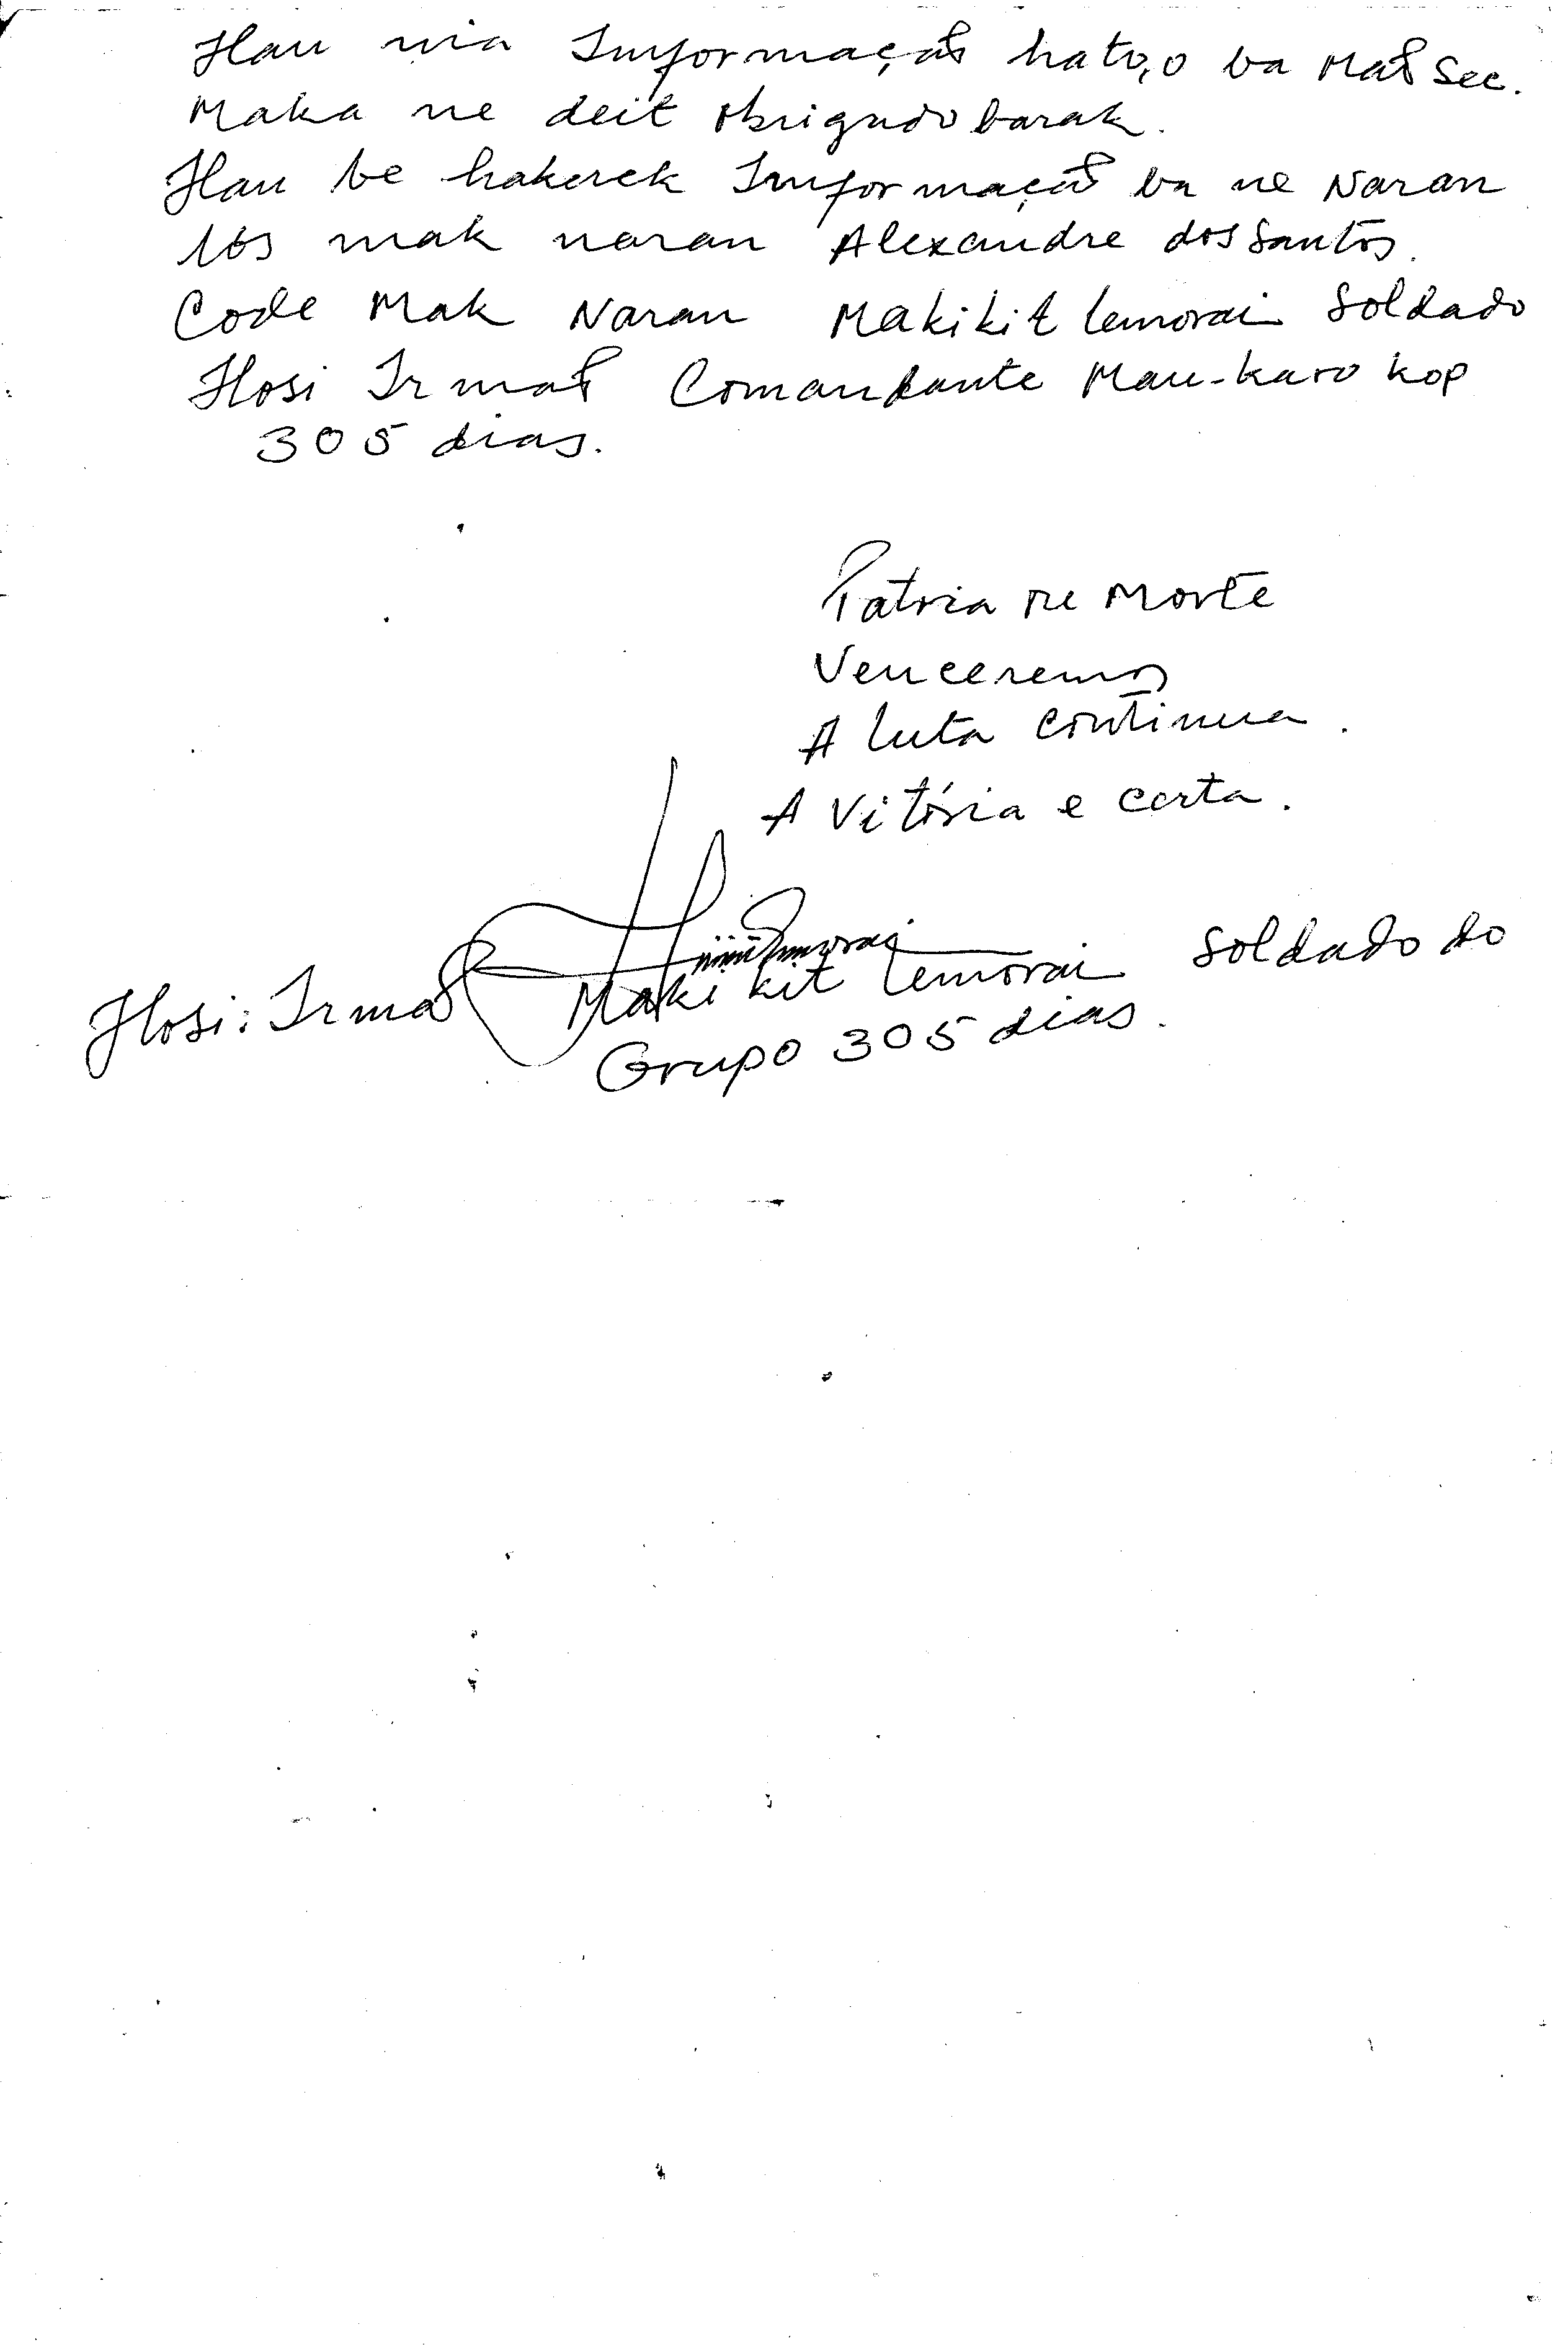 Hau nia Imformação hato,o ba Mat Sec.
Maka ne deit obrigado barak.
Hau be hakerek Imformação ba ne Naran
los mak naran Alexandre dos Santos.
Code Mak Naran Makikit lemorai Soldado
Hosi Irmão Comandante Mau-karo kop
305 dias.
Patria ou Morte
Venceremos
A luta continua.
A Vitória e certa.
Hosi: Irmão Makikit lemorai Soldado do
Grupo 305 dias.